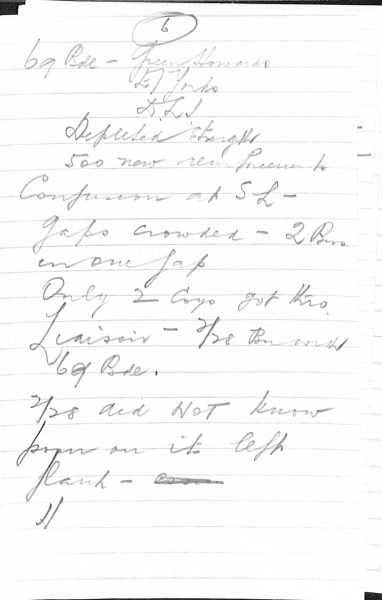 6
69 Bde - Green Howards
E Yorks
D L I
Depleted strength
500 new reinforcements
Confusion at S L -
gaps crowded - 2 Bns
in one gap
Only 2 Coys got thro.
Liaison - 2/28 Bn with
69 Bde.
2/28 did NOT know
posn on its left
flank -